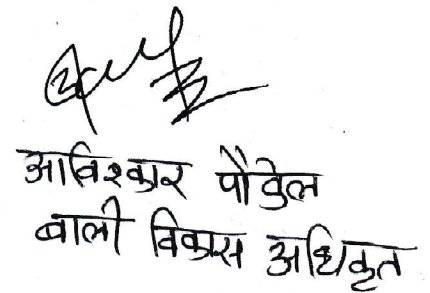 आविश्कार पौडेल
बाली विकास अधिकृत